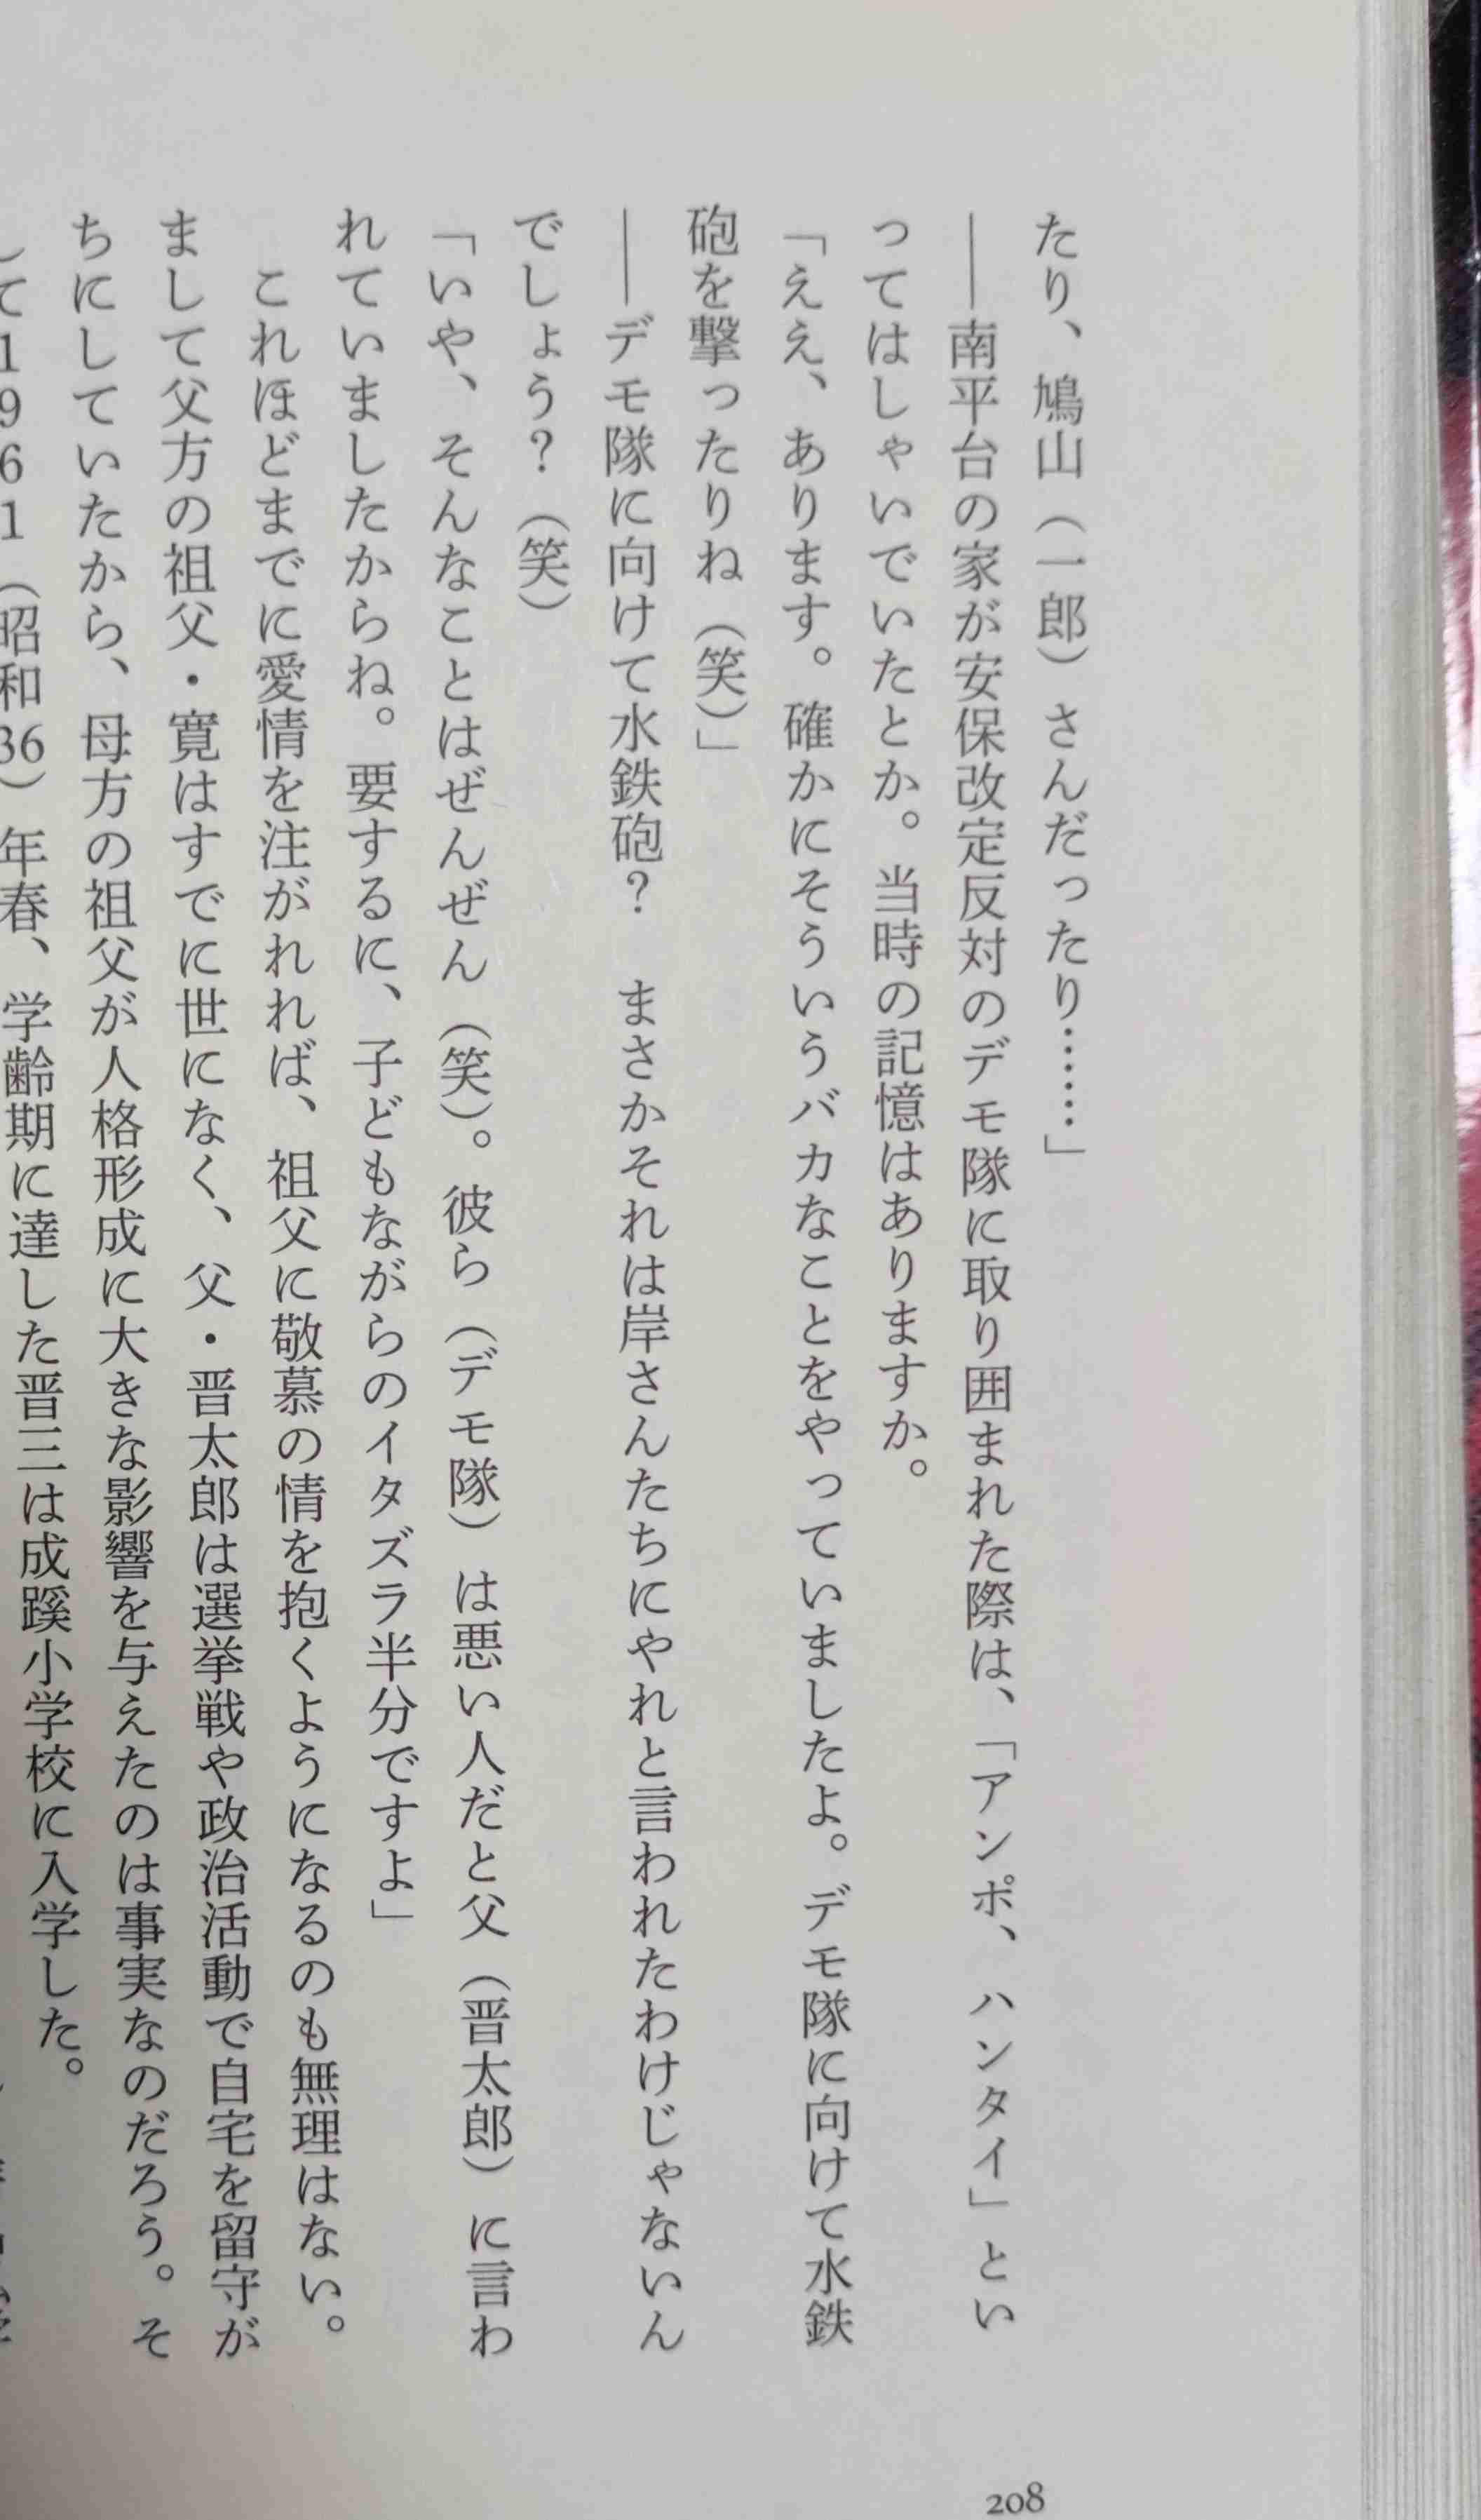 たり、鳩山（一郎）さんだったり……」
――南平台の家が安保改定反対のデモ隊に取り囲まれた際は、「アンポ、ハンタイ」とい
ってはしゃいでいたとか。当時の記憶はありますか。
「ええ、あります。確かにそういうバカなことをやっていましたよ。デモ隊に向けて水鉄
砲を撃ったりね（笑）」
――デモ隊に向けて水鉄砲？　まさかそれは岸さんたちにやれと言われたわけじゃないん
でしょう？（笑）
「いや、そんなことはぜんぜん（笑）。彼ら（デモ隊）は悪い人だと父（晋太郎）に言わ
れていましたからね。要するに、子どもながらのイタズラ半分ですよ」
　これほどまでに愛情を注がれれば、祖父に敬慕の情を抱くようになるのも無理はない。
まして父方の祖父・寛はすでに世になく、父・晋太郎は選挙戦や政治活動で自宅を留守が
ちにしていたから、母方の祖父が人格形成に大きな影響を与えたのは事実なのだろう。そ
して1961（昭和36）年春、学齢期に達した晋三は成蹊小学校に入学した。
208